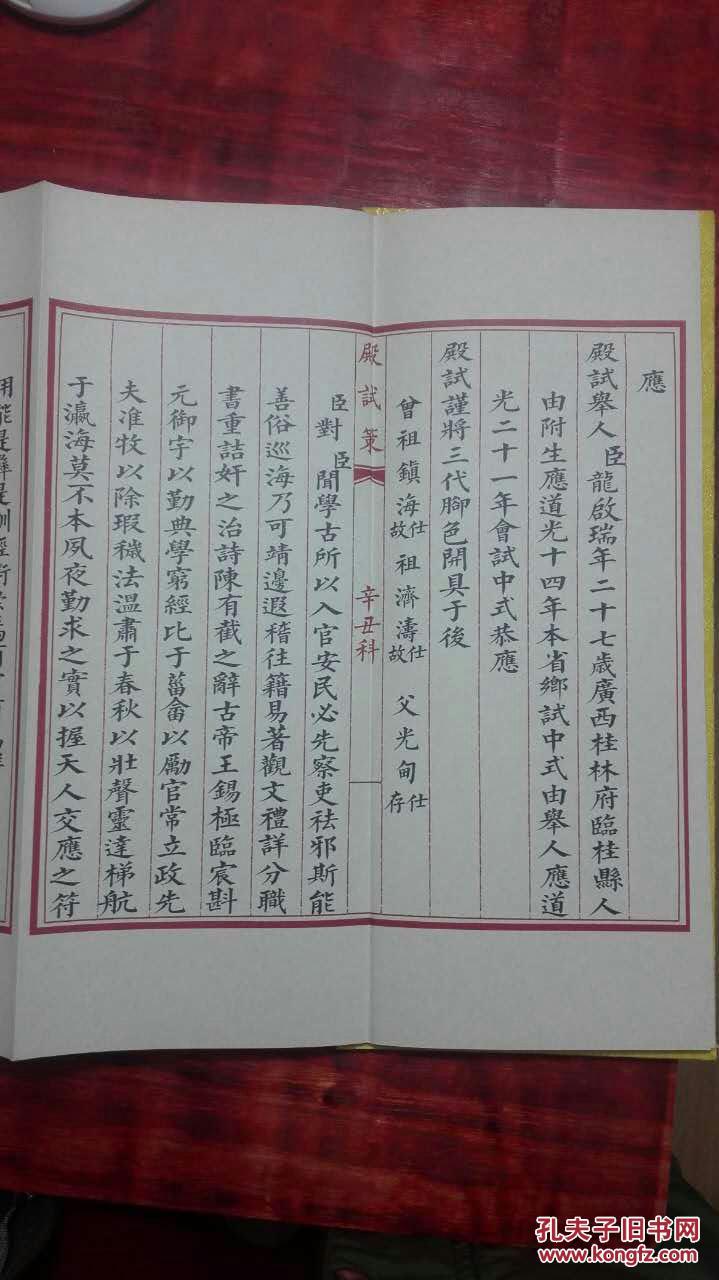 應
殿試舉人臣龍啟瑞年二十七歲廣西桂林府臨桂縣人
由附生應道光十四年本省鄉試中式由舉人應道
光二十一年會試中式恭應
殿試謹將三代腳色開具于後
曾祖鎮海仕故 祖濟濤仕故 父光甸仕存
殿試策 辛丑科
臣對臣聞學古所以入官安民必先察吏祛邪斯能
善俗巡海乃可靖邊遐稽往籍易著觀文禮詳分職
書重詰奸之治詩陳有截之辭古帝王錫極臨宸斟
元御宇以勤典學窮經比于菑畬以勵官常立政先
夫准牧以除瑕穢法溫肅于春秋以壯聲靈達梯航
于瀛海莫不本夙夜勤求之實以握天人交應之符
孔夫子旧书网
www.kongfz.com